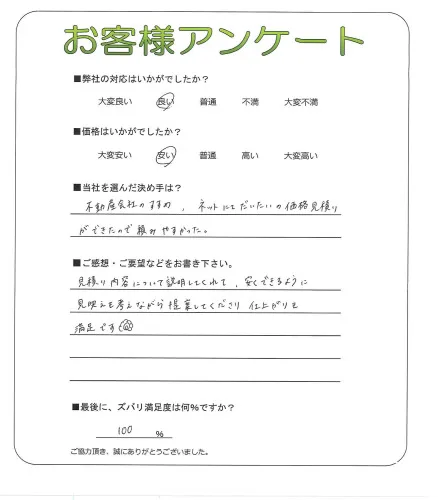 お客様アンケート
■弊社の対応はいかがでしたか？
大変良い 良い 普通 不満 大変不満
■価格はいかがでしたか？
大変安い 安い 普通 高い 大変高い
■当社を選んだ決め手は？
不動産会社のすすめ、ネットにてだいたいの価格見積り
ができたので頼みやすかった。
■ご感想・ご要望などをお書き下さい。
見積り内容について説明してくれて、安くできるように
見映えを考えながら提案してくださり仕上がりも
満足です
■最後に、ズバリ満足度は何%ですか？
100 %
ご協力頂き、誠にありがとうございました。